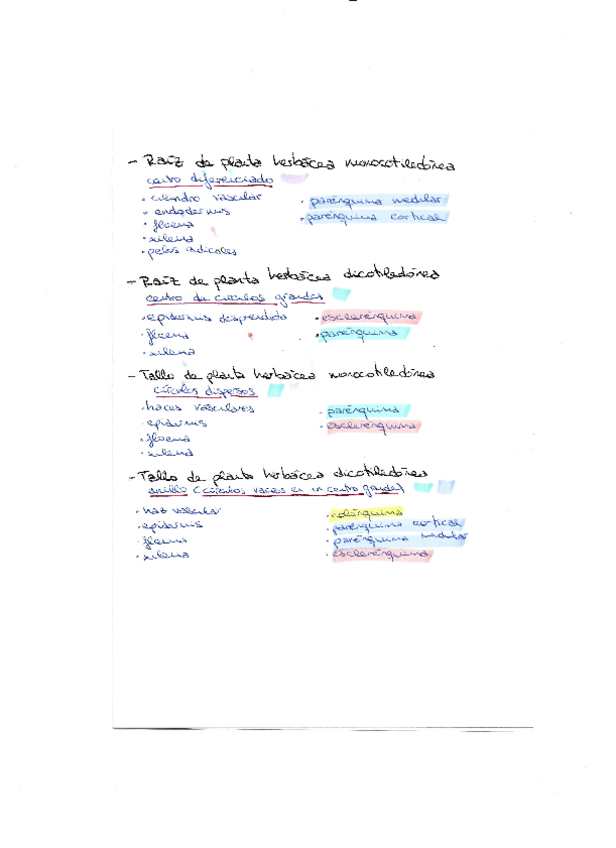 - Raíz de planta herbácea monocotiledónea
centro diferenciado
· cilindro vascular
· endodermis
· floema
· xilema
· pelos radicales
· parénquima medular
· parénquima cortical
- Raíz de planta herbácea dicotiledónea
centro de círculos grandes
· epidermis desprendida
· floema
· xilema
· esclerénquima
· parénquima
- Tallo de planta herbácea monocotiledónea
círculos dispersos
· haces vasculares
· epidermis
· floema
· xilema
· parénquima
· esclerénquima
- Tallo de planta herbácea dicotiledónea
anillo (círculos varios en un centro grande)
· haz vascular
· epidermis
· floema
· xilema
· colénquima
· parénquima cortical
· parénquima medular
· esclerénquima